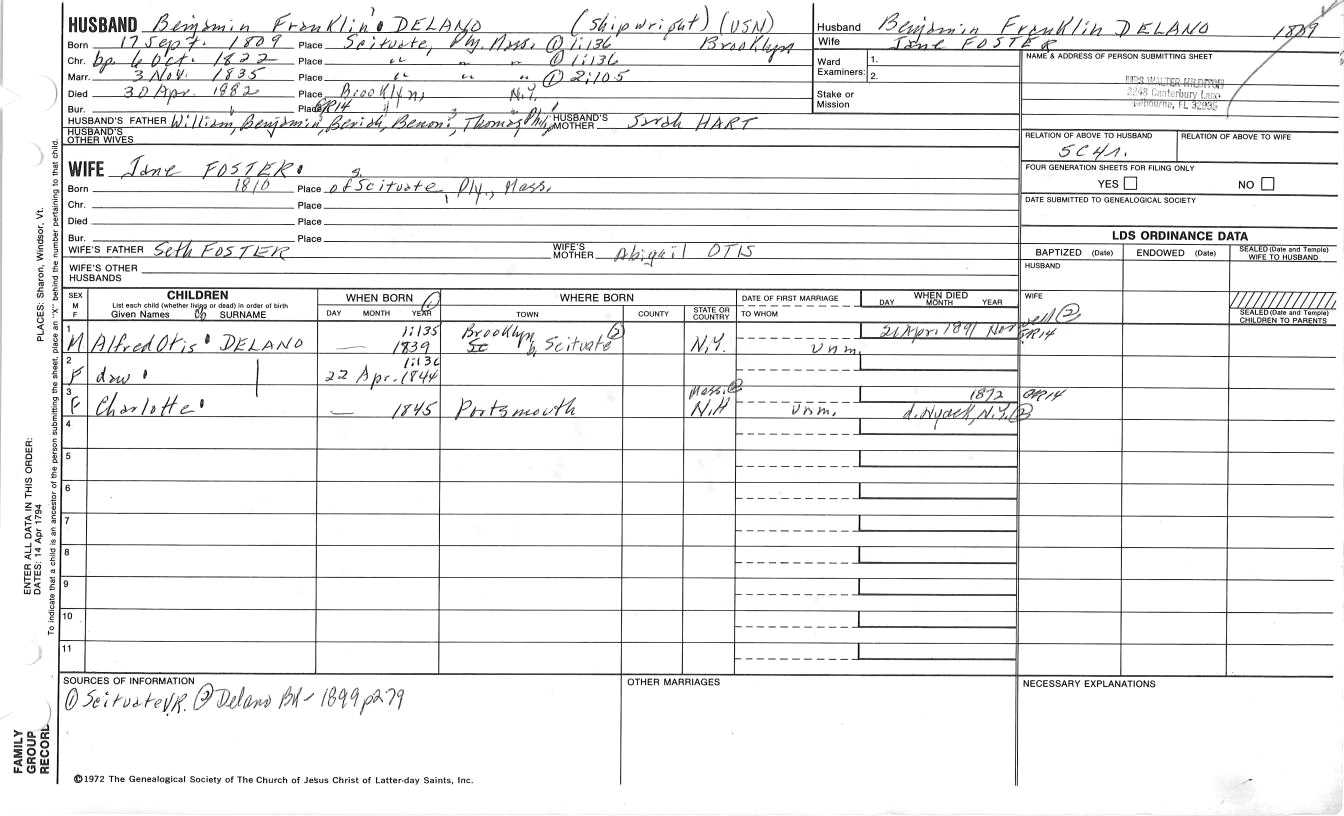 HUSBAND Benjamin Franklin DELANO (Shipwright) (USN)
Born 17 Sept. 1809 Place Scituate, Ply. Mass. ① 1:136 Brooklyn
Chr. bp 6 Oct. 1822 Place " " " ① 1:136
Marr. 3 Nov. 1835 Place " " " ① 2:105
Died 30 Apr. 1882 Place Brooklyn, N.Y.
Bur. Place GR14
HUSBAND'S FATHER William, Benjamin, Beriah, Benoni, Thomas, Phil. HUSBAND'S MOTHER Sarah HART
HUSBAND'S OTHER WIVES
WIFE Jane FOSTER
Born 1810 Place of Scituate, Ply., Mass.
Chr. Place
Died Place
Bur. Place
WIFE'S FATHER Seth FOSTER WIFE'S MOTHER Abigail OTIS
WIFE'S OTHER HUSBANDS
Husband Benjamin Franklin DELANO 1809
Wife Jane FOSTER
Ward Examiners: 1.
2.
Stake or Mission
NAME & ADDRESS OF PERSON SUBMITTING SHEET
MRS WALTER
2248 Canterbury Lane
Melbourne, FL 32935
RELATION OF ABOVE TO HUSBAND RELATION OF ABOVE TO WIFE
5C4r.
FOUR GENERATION SHEETS FOR FILING ONLY
YES NO
DATE SUBMITTED TO GENEALOGICAL SOCIETY
LDS ORDINANCE DATA
BAPTIZED (Date) ENDOWED (Date) SEALED (Date and Temple) WIFE TO HUSBAND
HUSBAND
WIFE
SEALED (Date and Temple) CHILDREN TO PARENTS
SEX M F CHILDREN
List each child (whether living or dead) in order of birth
Given Names SURNAME
WHEN BORN ①
DAY MONTH YEAR
WHERE BORN
TOWN COUNTY STATE OR COUNTRY
DATE OF FIRST MARRIAGE
TO WHOM
WHEN DIED
DAY MONTH YEAR
1 M Alfred Otis DELANO — 1:135 1839 Brooklyn b, Scituate ② N.Y. unm. 21 Apr. 1891 Norwell ② GR14
2 F daw 1:136 22 Apr. 1844
3 F Charlotte — 1845 Portsmouth Mass. ② N.H unm. 1872 GR14 d. Nyack, N.Y. ②
4
5
6
7
8
9
10
11
SOURCES OF INFORMATION
① Scituate V.R. ② Delano BK - 1899 p279
OTHER MARRIAGES
NECESSARY EXPLANATIONS
©1972 The Genealogical Society of The Church of Jesus Christ of Latter-day Saints, Inc.
FAMILY GROUP RECORD
ENTER ALL DATA IN THIS ORDER:
DATES: 14 Apr 1794
PLACES: Sharon, Windsor, Vt.
To indicate that a child is an ancestor of the person submitting the sheet, place an "X" behind the number pertaining to that child.